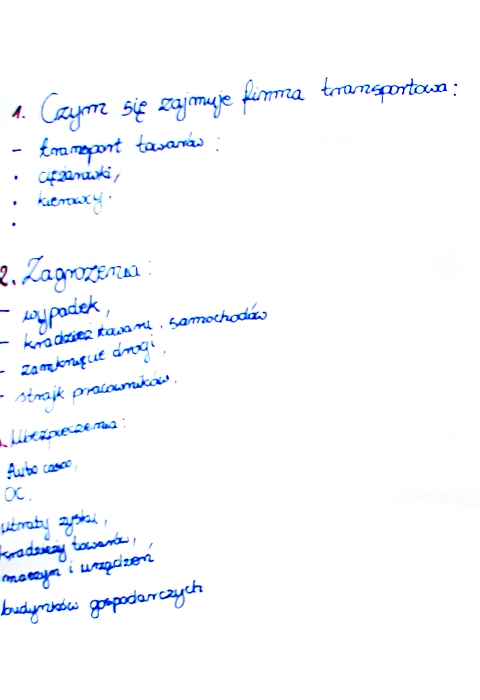 1. Czym się zajmuje firma transportowa:
- transport towarów:
• ciężarówki,
• kierowcy.
•
2. Zagrożenia:
- wypadek,
- kradzież towaru, samochodów
- zamknięcie drogi,
- strajk pracowników.
Ubezpieczenia:
Auto casco,
OC,
utraty zysku,
kradzieży towarów,
maszyn i urządzeń,
budynków gospodarczych